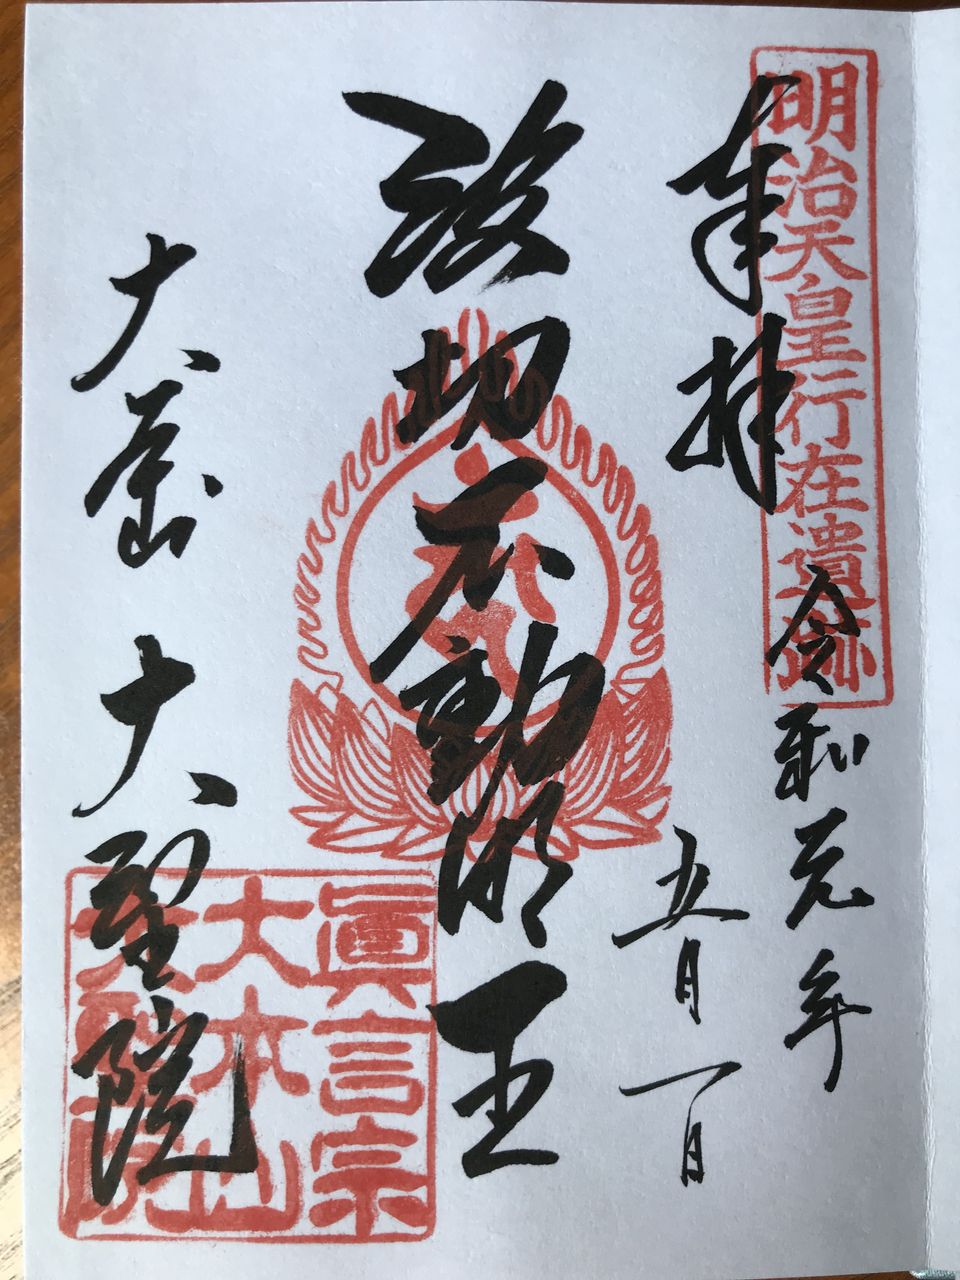 明治天皇行在遺跡
奉拝
令和元年
五月一日
波切不動明王
大本山
大聖院
眞言宗
大本山
大聖院